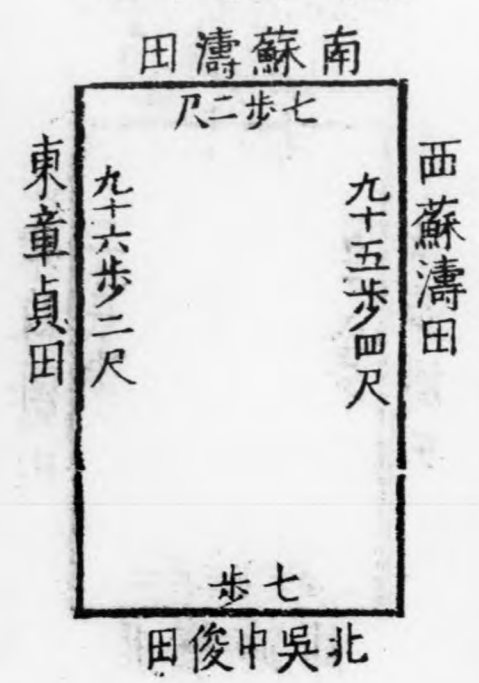 南蘇濤田
七步二尺
西蘇濤田
九十五步四尺
九十六步二尺
東章貞田
七步
北吳中俊田